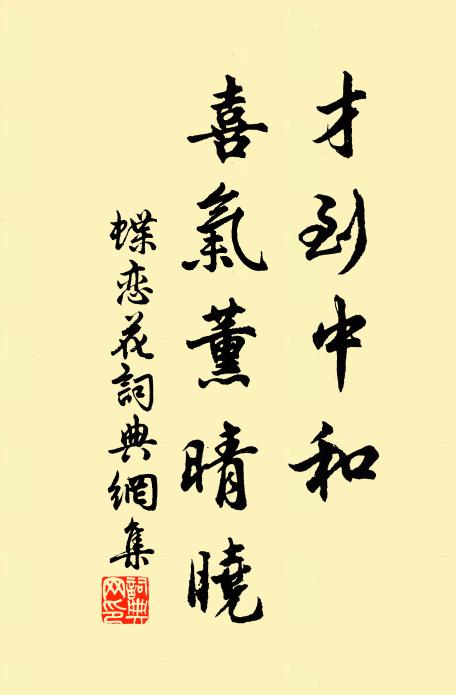 才到中和
喜氣薰晴曉
蝶恋花詞典網集
詞典
网印